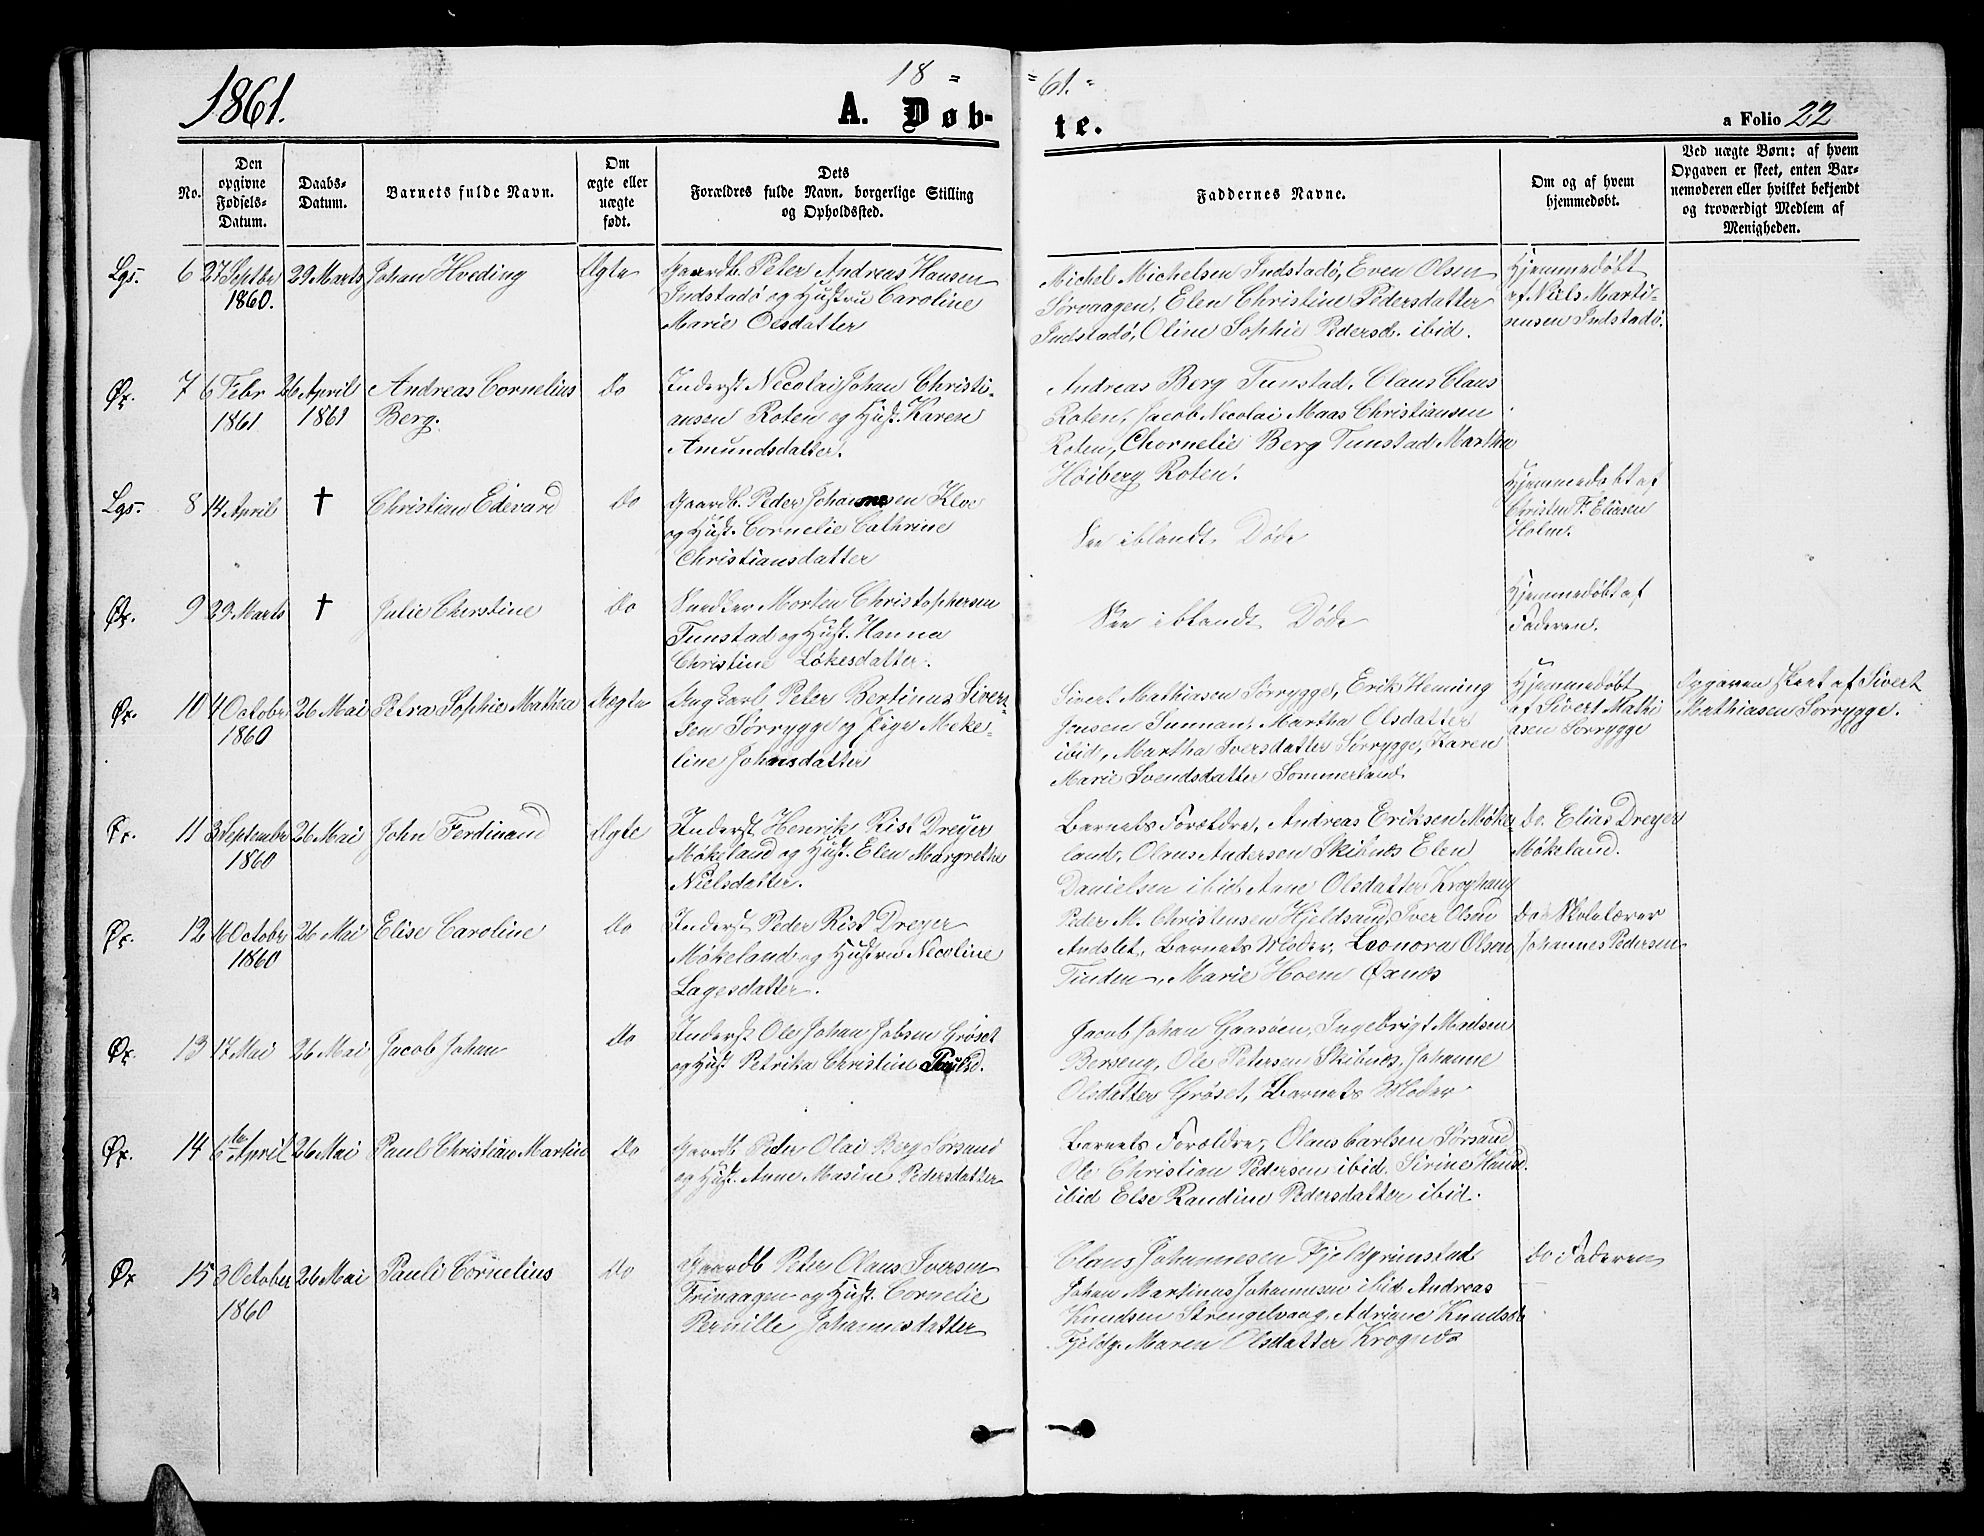 1861.
18 =
= 61. =
A. Døb-
te.
a Folio 22
No.
Den
opgivne
Fødsels-
Datum.
Daabs-
Datum.
Barnets fulde Navn.
Om
ægte eller
uægte
født.
Dets
Forældres fulde Navn, borgerlige Stilling
og Opholdssted.
Faddernes Navne.
Om og af hvem
hjemmedøbt.
Ved uægte Børn: af hvem
Opgaven er skeet, enten Bar-
nemoderen eller hvilket bekjendt
og troværdigt Medlem af
Menigheden.
Lgs. 6 27 Septbr 29 Marts Johan Hveding Ægte Gaardb. Peter Andreas Hansen
1860. Indstadø og Hustru Caroline
Marie Olsdatter
Michel Michelsen Indstadø, Even Olsen
Sørvaagen, Elen Christine Pedersdatter
Indstadø, Oline Sophie Pedersd. ibid.
Hjemmedøbt
af Niels Marti-
nusen Indstadø.
Øx. 7 6 Febr 26 April Andreas Cornelius Do Inderst Necolai Johan Christi-
1861 1861 Berg. ansen Roten og Hust. Karen
Amundsdatter.
Andreas Berg Tunstad, Claus Claus
Roten, Jacob Necolai Maas Christiansen
Roten, Chornelie Berg Tunstad Martha
Høiberg Roten.
Lgs. 8 14 April † Christian Edevard Do Gaardb. Peder Johannesen Kloe
og Hust. Cornelie Cathrine
Christiansdatter
See iblandt Døde
Hjemmedøbt af
Christen F. Eliasen
Holm.
Øx. 9 29 Marts † Julie Cherstine Do Snedker Morten Christophersen
Tunstad og Hust. Hanna
Christine Løkesdatter.
See iblandt Døde
Hjemmedøbt af
Faderen.
Øx. 10 4 October 26 Mai Petra Sophie Mathea Uægte Ung Karl Peter Bertinus Sivert-
1860 sen Sørrygge og Pige Meke-
line Johnsdatter
Sivert Mathiasen Sørrygge, Erik Heming
Jensen Tunnan, Martha Olsdatter
ibid, Martha Iversdatter Sørrygge, Karen
Marie Svendsdatter Sommerland.
Hjemmedøbt
af Sivert Mathi
asen Sørrygge
Opgaven skeet af Sivert
Mathiasen Sørrygge.
Øx. 11 3 Septembr 26 Mai John Ferdinand Ægte Inderst Henrik Rist Dreyer
1860 Møkeland og Hust. Elen Margrethe
Nielsdatter.
Barnets Forældre, Andreas Eriksen Møke
land, Olaus Andersen Skibnes Elen
Danielsen ibid Ane Olsdatter
Do. Elias Dreyer
Møkeland.
Øx. 12 16 Octobr 26 Mai Elise Caroline Do Inderst Peder Rist Dreyer
1860 Møkeland og Hustru Necoline
Lagesdatter.
Peder M. Christensen Hjeldsand, Iver Olsen
Andslet, Barnets Moder, Leonora Olsen
Tinden, Marie Hoem Øxnes
Do Skolelærer
Johannes Pedersen
Øx. 13 17 Mai 26 Mai Jacob Johan Do Inderst Ole Johan Jobsen Grøset
og Hust Petrika Christine
Jacob Johan Gaasøen, Ingebrigt Madsen
Berseng, Ole Petersen Skibnes, Johanne
Olsdatter Grøset, Barnets Moder
Øx. 14 6te April 26 Mai Paul Christian Martin Do Gaardb Peder Olai Berg Sørsand
og Hust. Anne Masine Pedersdatter
Barnets Forældre, Olaus Carlsen Sørsand
Ole Christian Pedersen ibid, Sirine Hansd.
ibid Else Randine Pedersdatter ibid.
Øx 15 3 October 26 Mai Pauli Cornelius Do Gaardb Peter Olaus Iversen
1860 Trinaagen og Hust. Cornelie
Pernille Johannesdatter
Claus Johannesen Fjeldgrimstad
Johan Martinus Johannesen ibid Andreas
Knudsen Strengelvaag, Adriane Knudsdr
Fjeldg. Maren Olsdatter Krognes
Do Faderen